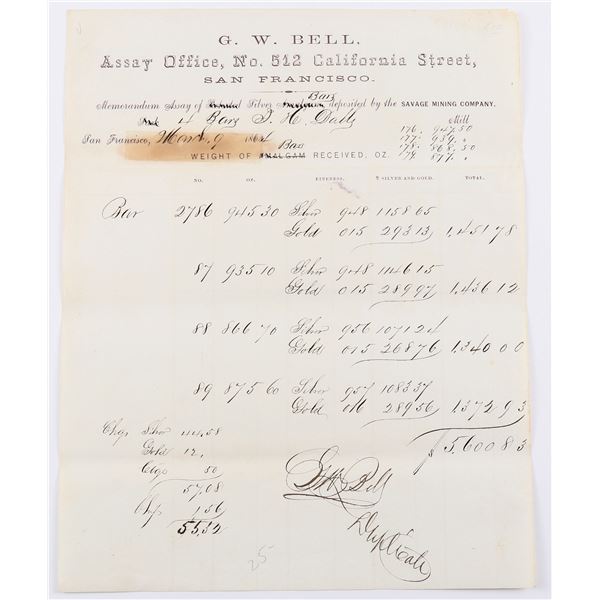 G. W. BELL,
Assay Office, No. 512 California Street,
SAN FRANCISCO.
Bars
Memorandum Assay of Silver deposited by the SAVAGE MINING COMPANY.
4 Bars J. H. Dall Mill
176. 947.50
San Francisco, March 9 1864 177. 939. "
178. 868.50
Bars 179 877. "
WEIGHT OF AMALGAM RECEIVED, OZ.
NO. OZ. FINENESS. $ SILVER AND GOLD. TOTAL.
Bar 2786 945 30 Silver 948 1158 65
Gold 015 293 13 1,451 78
87 935 10 Silver 948 1146 15
Gold 015 289 97 1,436 12
88 866 70 Silver 956 1071 24
Gold 015 268 76 1,340 00
89 875 60 Silver 957 1083 37
Gold 016 289 56 1,372 93
Chgs Silver 44.58 $5,600 83
Gold 12,
50
57,08
1.56
55,52
G W Bell
Duplicate
25